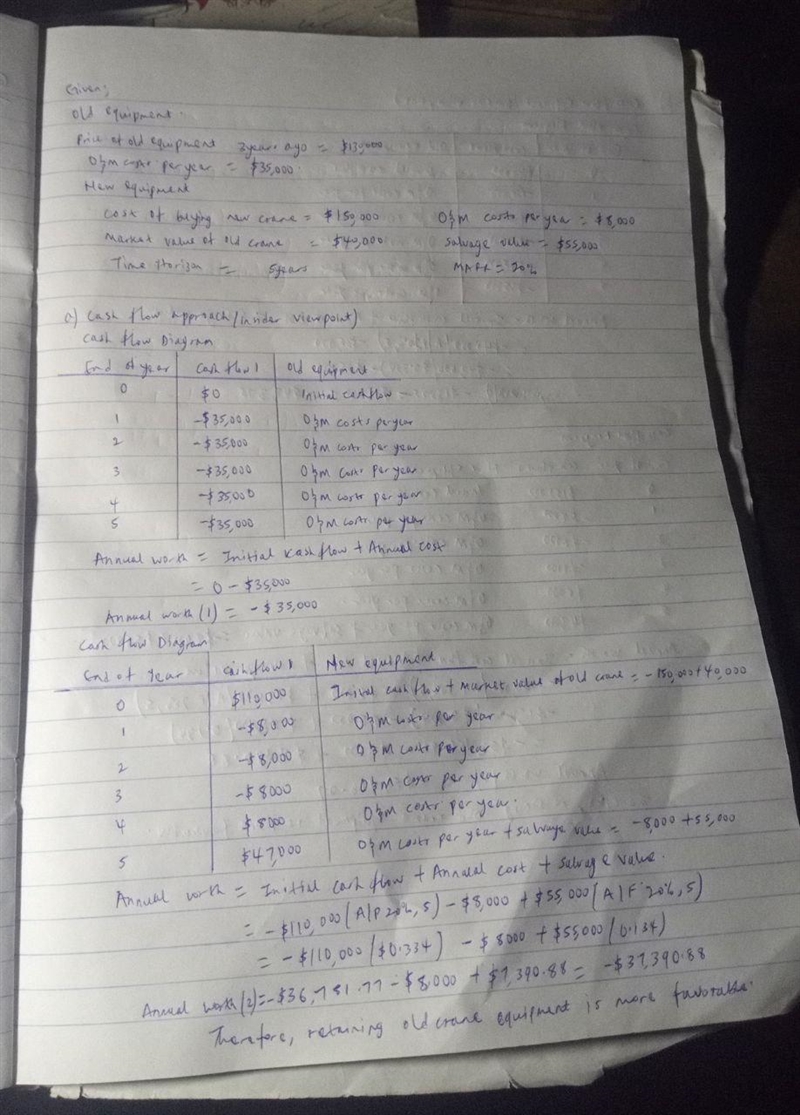 Given;
Old equipment.
Price of old equipment 3 years ago = $130,000
O&M costs per year = $35,000
New equipment
Cost of buying new crane = $150,000 O&M costs per year = $8,000
Market value of old crane = $40,000 Salvage value = $55,000
Time Horizon = 5years MARR = 20%
a) Cash flow approach (insider viewpoint)
Cash flow Diagram
End of year Cash flow 1 Old equipment
0 $0 Initial cashflow
1 -$35,000 O&M costs per year
2 -$35,000 O&M costs per year
3 -$35,000 O&M costs per year
4 -$35,000 O&M costs per year
5 -$35,000 O&M costs per year
Annual worth = Initial cash flow + Annual cost
= 0 - $35,000
Annual worth (1) = -$35,000
Cash flow Diagram
End of Year Cash flow 1 New equipment
0 $110,000 Initial cash flow + market value of old crane = -150,000+40,000
1 -$8,000 O&M costs per year
2 -$8,000 O&M costs per year
3 -$8000 O&M costs per year
4 $8000 O&M costs per year.
5 $47,000 O&M costs per year + salvage value = -8,000 +55,000
Annual worth = Initial cash flow + Annual cost + salvage value.
= -$110,000(A/P 20%, 5) - $8,000 + $55,000(A/F 20%, 5)
= -$110,000($0.334) - $8000 + $55,000(0.134)
Annual worth (2) = -$36,781.77 - $8,000 + $7,390.88 = -$37,390.88
Therefore, retaining old crane equipment is more favorable.